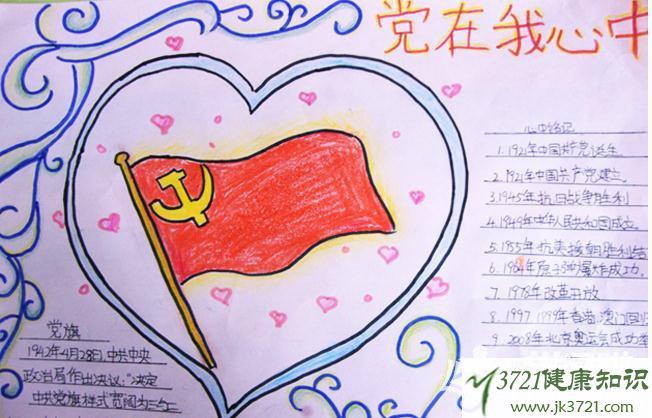 党在我心中
心中铭记
1.1921年中国共产党诞生
2.1921年中国共产党建立
3.1945年抗日战争胜利
4.1949年中华人民共和国成立
5.1955年抗美援朝胜利结
6.1964年原子弹爆炸成功
7.1978年改革开放
8.1997 1999年香港澳门回归
9.2008年北京奥运会成功举
党旗
1942年4月28日,中共中央
政治局作出决议:"决定
中共党旗样式宽阔为三与二
3721健康知识
www.jk3721.com